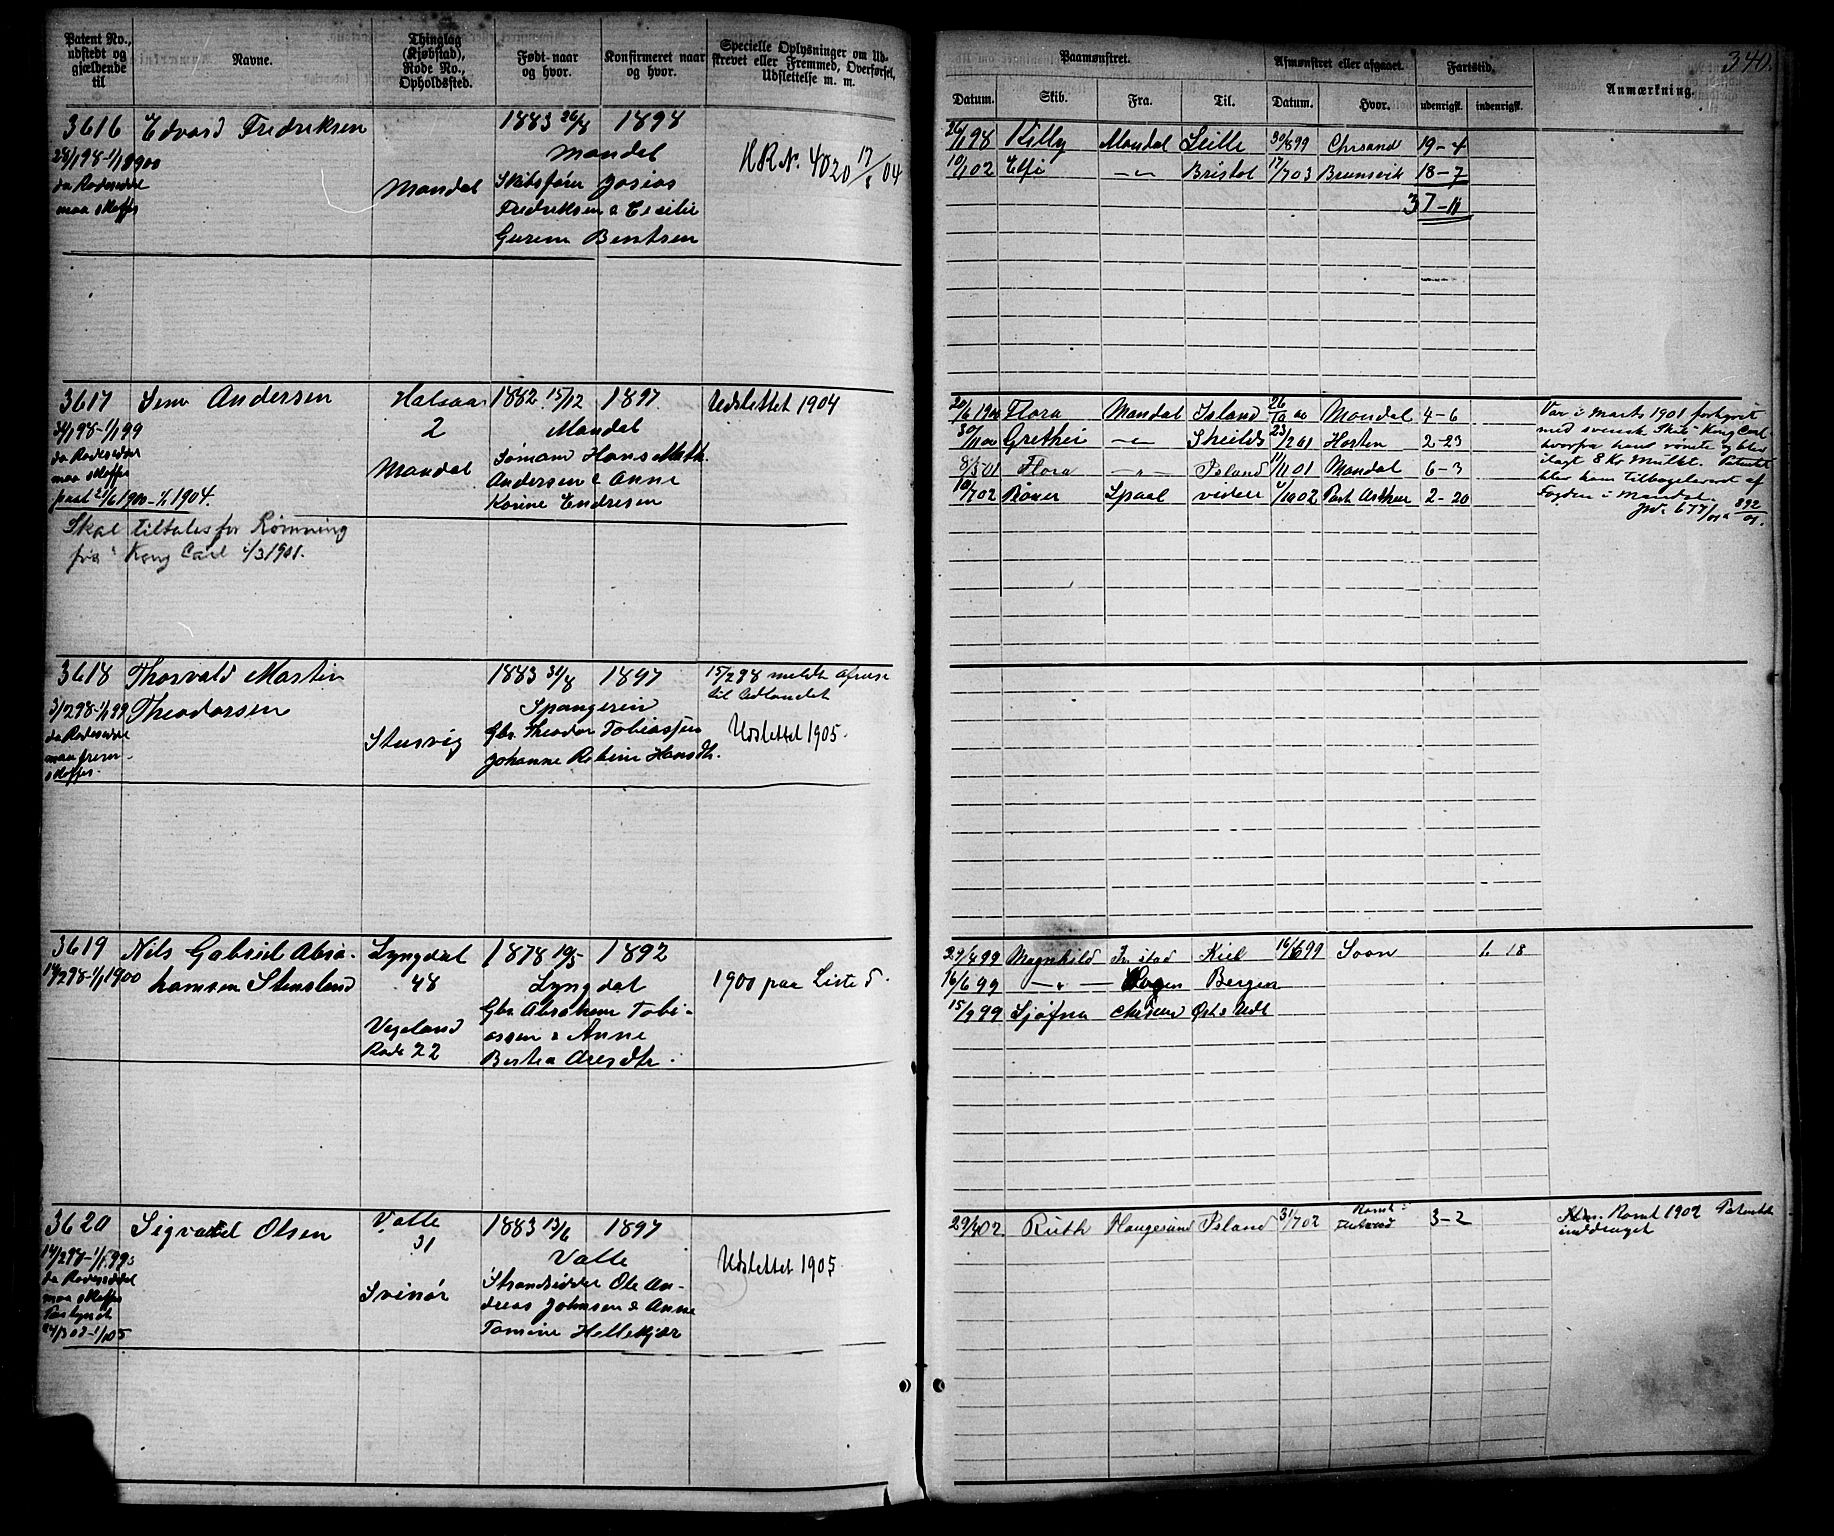 340.
Patent No., udstedt og gjældende til
Navne.
Thinglag (Kjøbstad), Rode No., Opholdssted.
Født naar og hvor.
Konfirmeret naar og hvor.
Specielle Oplysninger om Udskrevet eller Fremmed, Overførsel, Udslettelse m. m.
Paamønstret.
Afmønstret eller afgaaet.
Fartstid.
Anmærkning.
Datum. Skib. Fra. Til. Datum. Hvor. udenrigsk. indenrigsk.
3616 Edvard Fredriksen 1883 26/8 1898
28/1 98-1/1 1900 Mandal
da Rodeseddel Mandal Skibsfører Josias
maa skaffes Fredriksen & Cecilie
Bentsen
H.R. Nr. 4020 04
98 Mandal 30/8 99 Chrsand 19-4
10/1 02 Elfi -„- Bristol 17/7 03 Brunsvik 18-7
37-11
3617 Andersen Halsaa 1882 15/12 1897 Udslettet 1904
98-1/1 99 2 Mandal
da Rodeseddel Mandal Hans Math.
maa skaffes Andersen & Anne
1900-1/1 1904. Korine Endresen
Skal tiltales for Rømning
fra Kong Carl 1/3 1901.
20/4 1900 Flora Mandal Island 26/10 00 Mandal 4-6
30/11 00 Grethei -„- 23/2 01 Horten 2-23
8/5 01 Flora -„- Island 11/11 01 Mandal 6-3
10/7 02 videre 02 Port Arthur 2-20
Var i Marts 1901 forhyret
med svensk Skib Kong Carl
hvorfra han rømte og blev
ilagt 8 Kr Mulkt. Patentet
blev ham tilbageleveret af
Fogden i Mandal.
677/01 & 892/01.
3618 Thorvald Martin 1883 31/8 1897 15/2 98 meldt Afreise
til Udlandet
3/2 98-1/1 99 Theodorsen Spangereid
da Rodeseddel Stusvig Gbr. Theodor Tobiassen Udslettet 1905.
Johanne Hansdtr.
skaffes.
3619 Nils Gabriel Abra- Lyngdal 1878 19/5 1892
14/2 98-1/1 1900 hamsen Stensland 48 Lyngdal 1900 paa Liste d.
Gbr. Abraham Tobi-
Vegeland assen & Anne
Rode 22 Aresdtr.
27/4 99 Magnhild Fr.stad Kiel 16/6 99 Soon 1. 18
16/6 99 -„- Bergen
15/9 99 Sjøfna
3620 Sigvald Olsen Valle 1883 13/6 1897
14/2 98-1/1 99 31 Valle Udslettet 1905.
da Rodeseddel Svinør Strandsidder Ole An-
maa skaffes dreas Johnsen & Anne
Tomine Hellekjær
24/3 02-1/1 05
29/4 02 Ruth Haugesund Island 31/7 02 3-2 1902 Patentet
inddraget